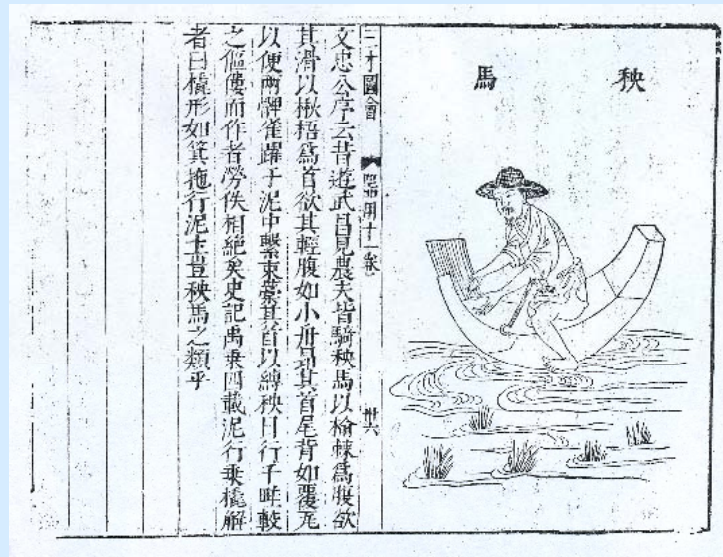 秧馬
三才圖會 器用十一卷 卅六
文忠公序云昔遊武昌見農夫皆騎秧馬以榆棘爲腹欲
其滑以楸梧爲首欲其輕腹如小舟昂其首尾背如覆瓦
以便兩髀雀躍于泥中繫束藁其首以縛秧日行千畦較
之傴僂而作者勞佚相絕矣史記禹乘四載泥行乘橇解
者曰橇形如箕拖行泥上豈秧馬之類乎